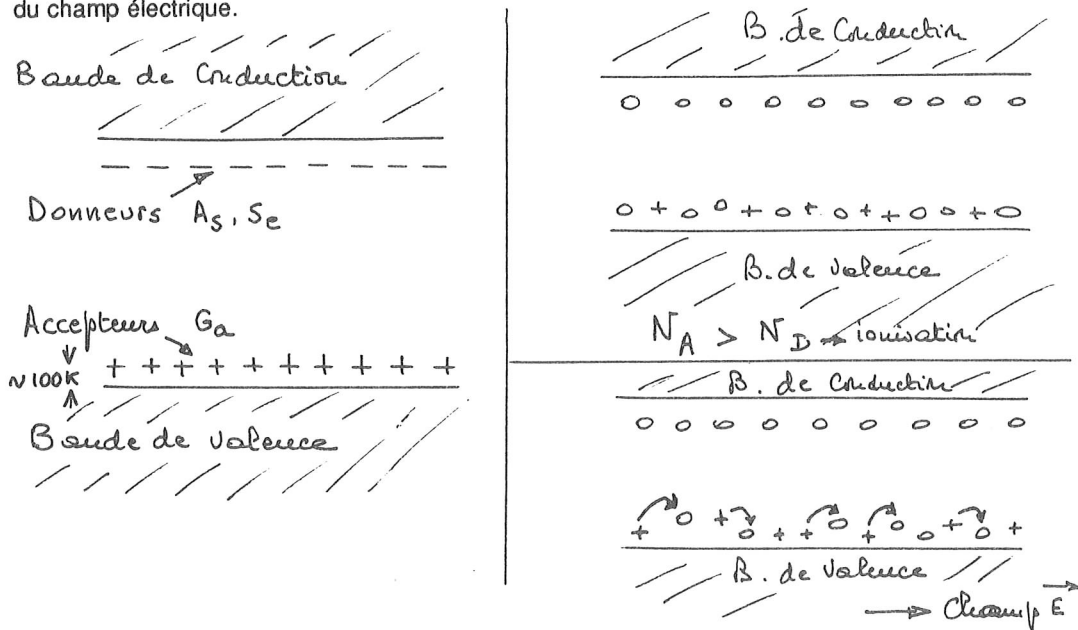 du champ électrique.
Bande de Conduction
Donneurs As, Se
Accepteurs Ga
~100K
Bande de valence
B. de Conduction
B. de valence
N_A > N_D → ionisation
B. de Conduction
B. de valence
→ Champ E